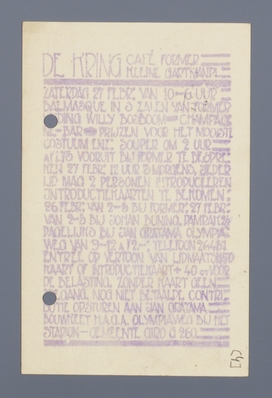 DE KRING CAFÉ FORMER
KLEINE GARTMANPL.
ZATERDAG 27 FEBR VAN 10-6 UUR
BAL MASQUÉ IN 3 ZALEN VAN FORMER
WILLY BOSBOOM — CHAMPAG
NE-BAR — PRIJZEN VOOR HET MOOISTE
COSTUUM ENZ SOUPER OM 2 UUR
VOORUIT BIJ FORMER TE BESPRE
KEN 27 FEBR 12 UUR 'S MORGENS, IEDER
LID MAG 2 PERSONEN INTRODUCEEREN
INTRODUCTIEKAARTEN TE BEKOMEN:
26 FEBR VAN 2-5 BIJ FORMER, 27 FEBR
VAN 2-5 BIJ JOHAN BUNING,
DAGELIJKS BIJ JAN OLYMPIA
WEG VAN 9-12 À 2-; TELEFOON 26481
ENTRÉE OP VERTOON VAN LIDMAATSCHAP
KAART OF INTRODUCTIEKAART + 40 CT VOOR
DE BELASTING. ZONDER KAART GEEN
TOEGANG. NOG NIET BETAALDE CONTRI
BUTIE OPSTUREN AAN JAN
BOUWKEET OLYMPIAWEG BIJ HET
STADION — GEMEENTE GIRO